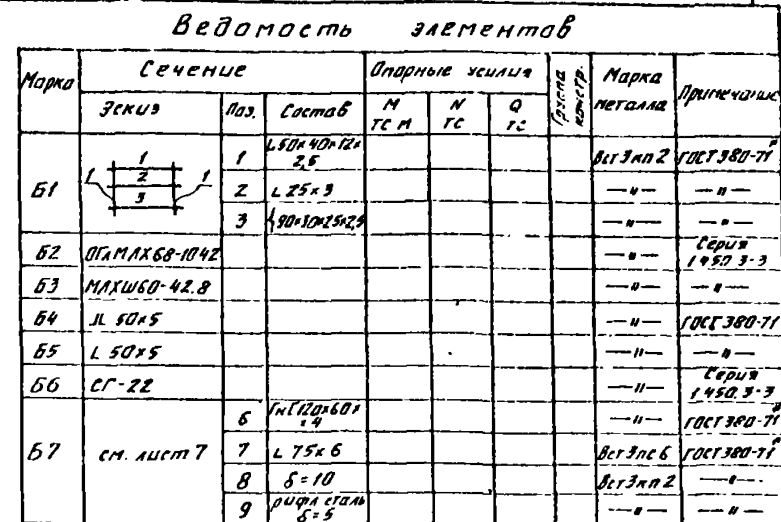 Ведомость элементов
Марка Сечение Опорные усилия Группа констр. Марка металла Примечание
Эскиз Поз. Состав M тс м N тс Q тс
Б1 1 1 2 3 1 1 L 50×40×12×2,5 Вст3кп2 ГОСТ 380-71
2 L 25×3 —"— —"—
3 90×30×25×2,5 —"— —"—
Б2 ОГлМЛХ68-1042 —"— Серия 1.450.3-3
Б3 МЛХШ60-42.8 —"— —"—
Б4 ⅃L 50×5 —"— ГОСТ 380-71
Б5 L 50×5 —"— —"—
Б6 СГ-22 —"— Серия 1.450.3-3
Б7 см. лист 7 6 Гн[120×60×4 —"— ГОСТ 380-71
7 L 75×6 Вст3пс6 ГОСТ 380-71
8 δ=10 Вст3кп2 —"—
9 рифл сталь δ=5 —"— —"—